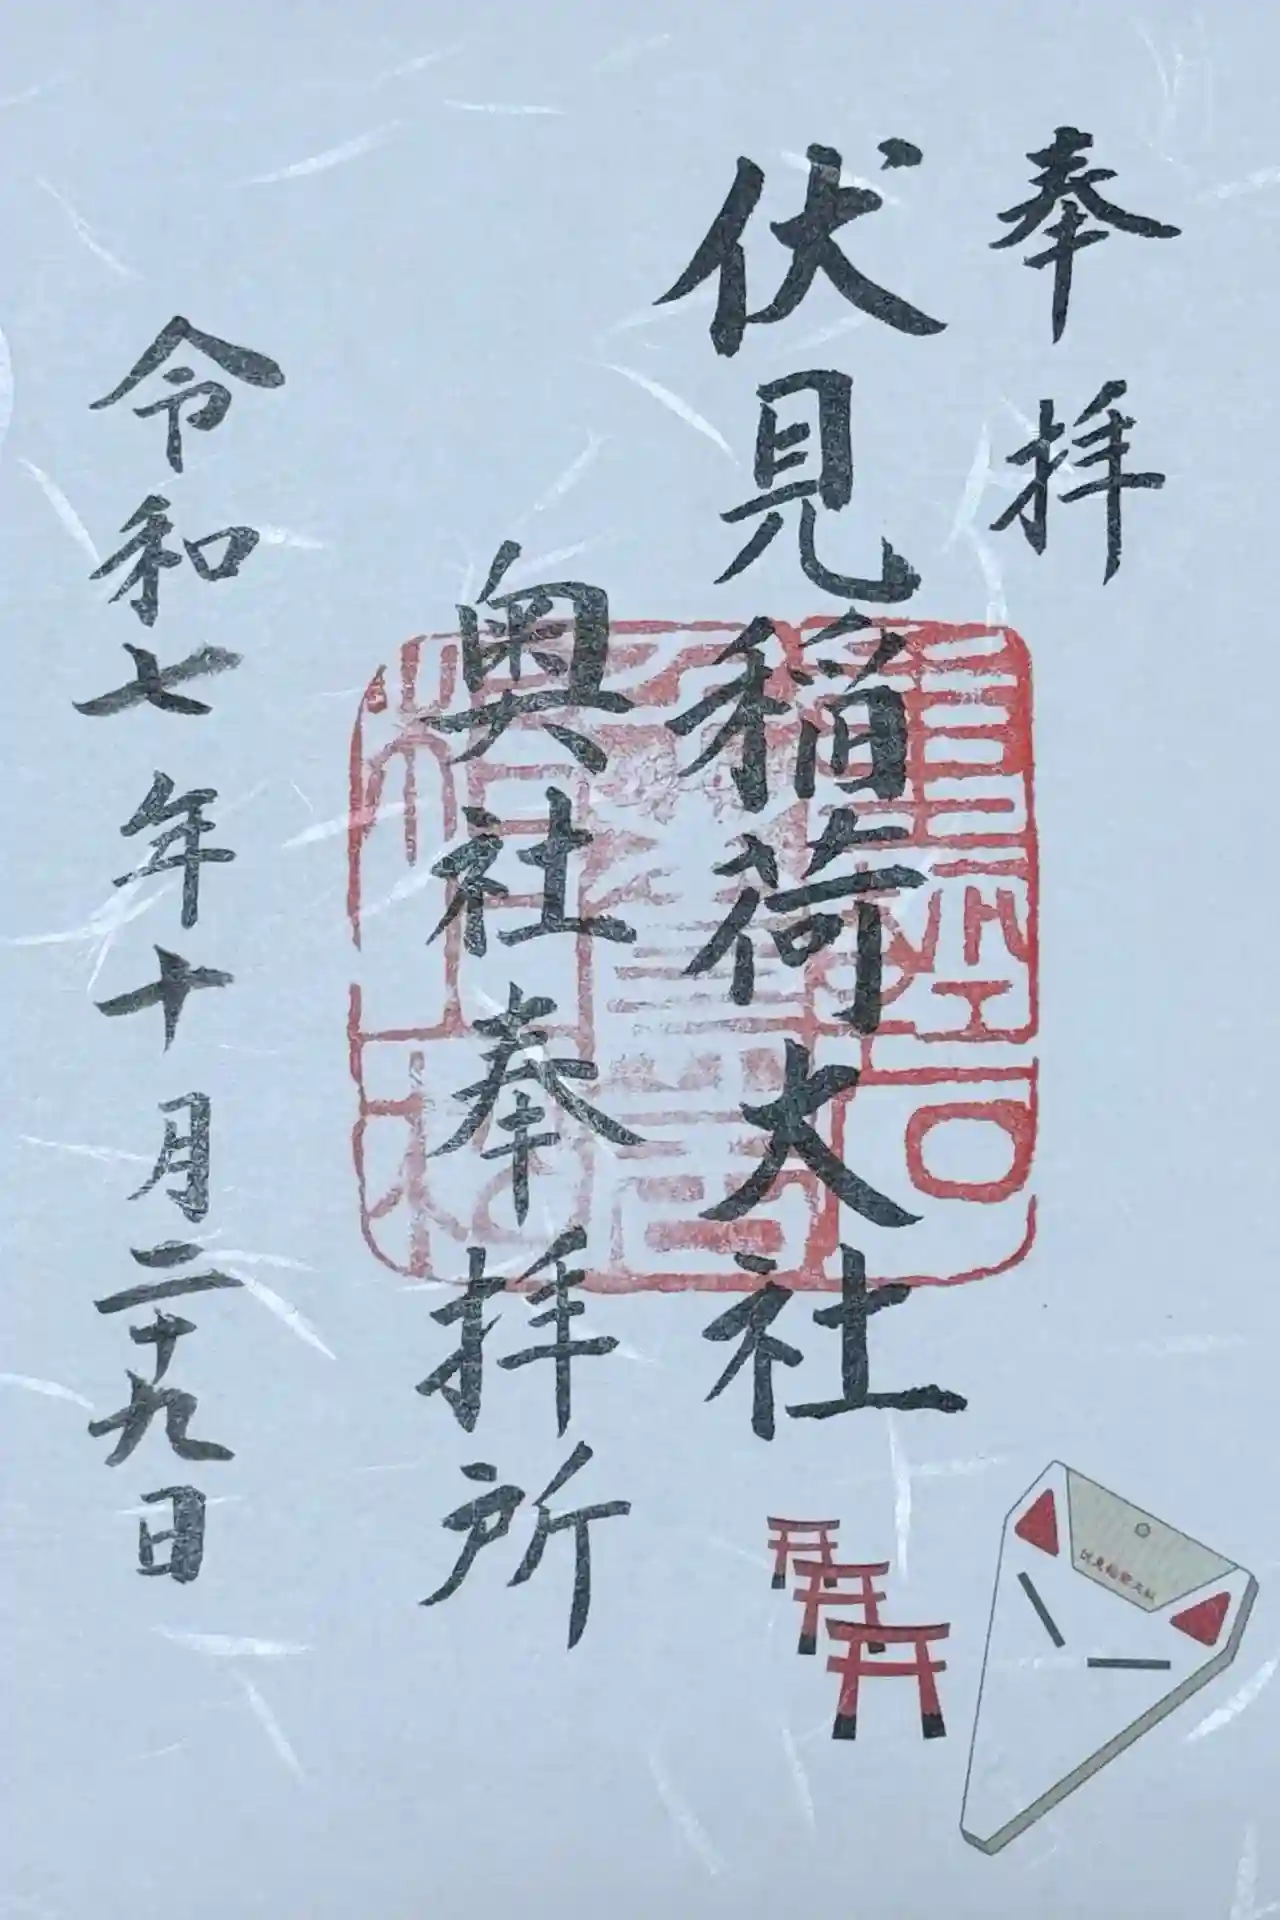 奉拝
伏見稲荷大社
奥社奉拝所
令和七年十月二十九日
伏見稲荷大社